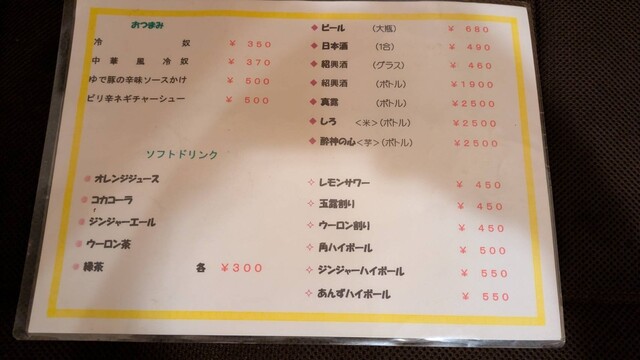 おつまみ
冷 奴 ￥ 350
中 華 風 冷 奴 ￥ 370
ゆで豚の辛味ソースかけ ￥ 500
ピリ辛ネギチャーシュー ￥ 500
ソフトドリンク
オレンジジュース
コカコーラ
ジンジャーエール
ウーロン茶
緑茶 各 ￥300
ビール （大瓶） ￥ 680
日本酒 （1合） ￥ 490
紹興酒 （グラス） ￥ 460
紹興酒 （ボトル） ￥1900
真露 （ボトル） ￥2500
しろ ＜米＞（ボトル） ￥2500
酔神の心＜芋＞（ボトル） ￥2500
レモンサワー ￥ 450
玉露割り ￥ 450
ウーロン割り ￥ 450
角ハイボール ￥ 500
ジンジャーハイボール ￥ 550
あんずハイボール ￥ 550